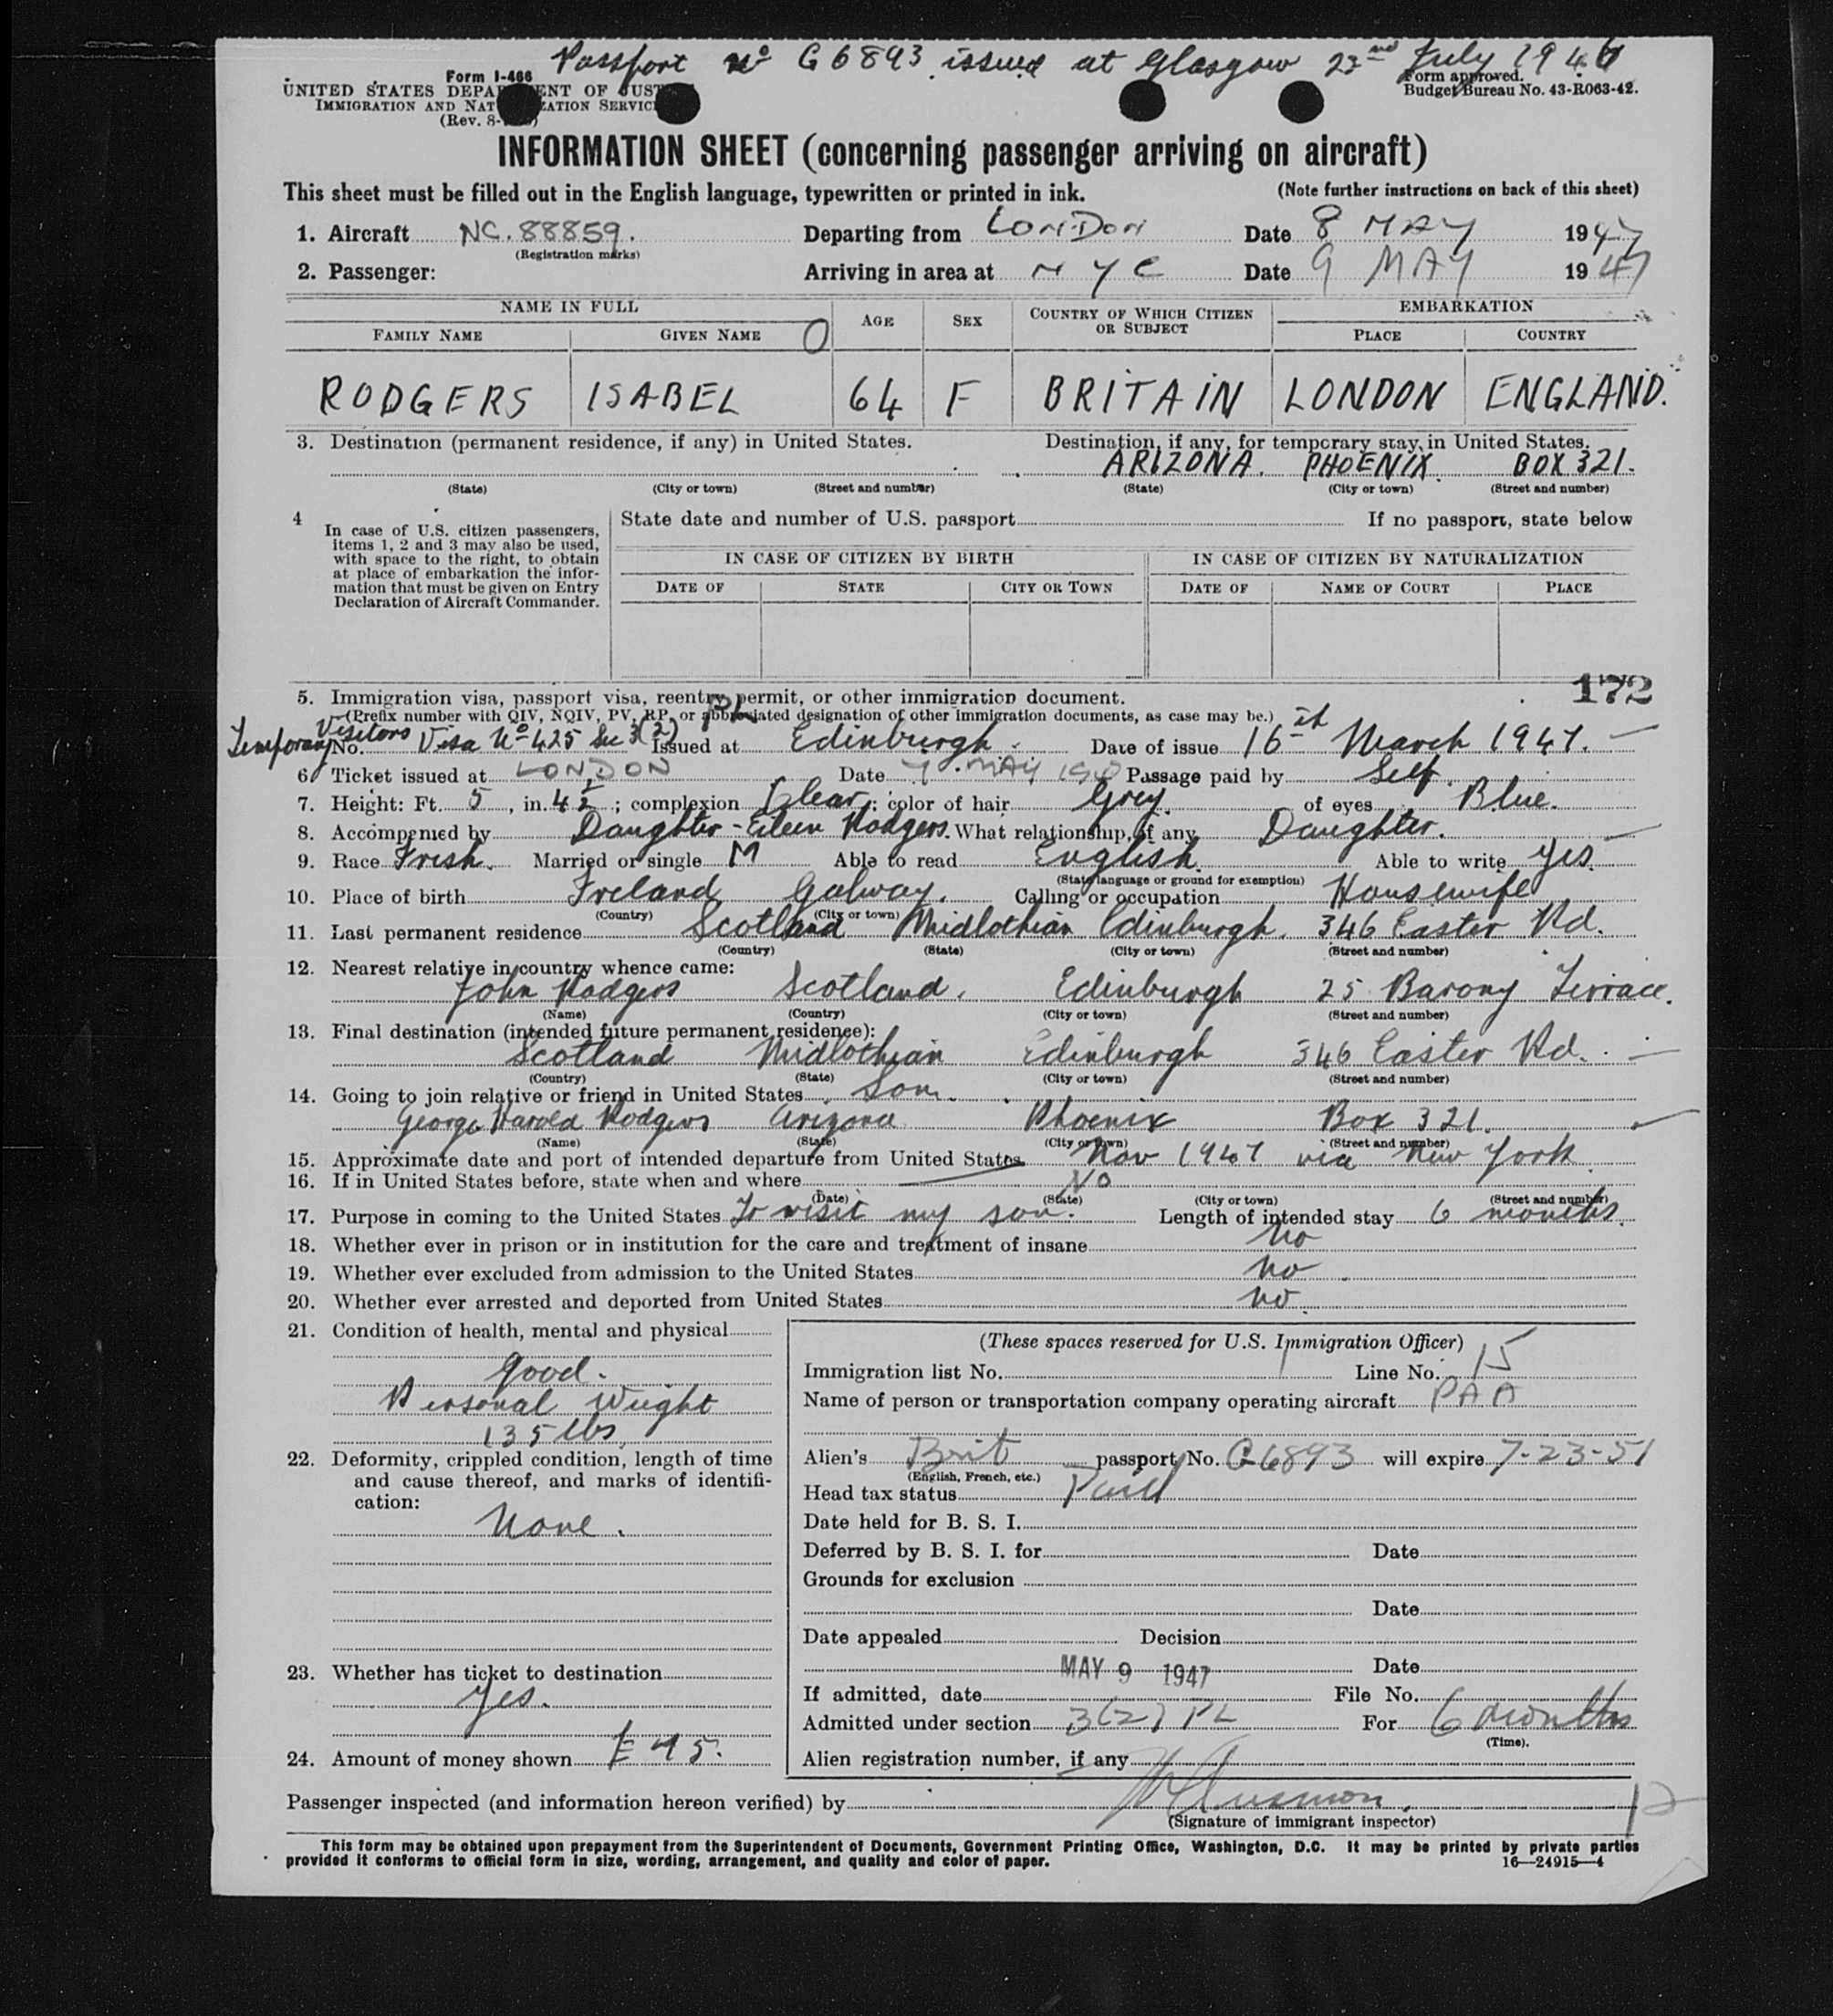 Passport No G 6893 issued at Glasgow 23rd July 1946
Form I-466
UNITED STATES DEPARTMENT OF JUSTICE
IMMIGRATION AND NATURALIZATION SERVICE
(Rev. 8-
Form approved.
Budget Bureau No. 43-R063-42.
INFORMATION SHEET (concerning passenger arriving on aircraft)
This sheet must be filled out in the English language, typewritten or printed in ink. (Note further instructions on back of this sheet)
1. Aircraft NC. 88859. Departing from LONDON Date 8 MAY 1947
(Registration marks)
2. Passenger: Arriving in area at NYC Date 9 MAY 1947
NAME IN FULL AGE SEX COUNTRY OF WHICH CITIZEN OR SUBJECT EMBARKATION
FAMILY NAME GIVEN NAME O PLACE COUNTRY
RODGERS ISABEL 64 F BRITAIN LONDON ENGLAND.
3. Destination (permanent residence, if any) in United States. Destination, if any, for temporary stay in United States.
ARIZONA. PHOENIX. BOX 321.
(State) (City or town) (Street and number) (State) (City or town) (Street and number)
4 In case of U.S. citizen passengers, items 1, 2 and 3 may also be used, with space to the right, to obtain at place of embarkation the information that must be given on Entry Declaration of Aircraft Commander.
State date and number of U.S. passport If no passport, state below
IN CASE OF CITIZEN BY BIRTH IN CASE OF CITIZEN BY NATURALIZATION
DATE OF STATE CITY OR TOWN DATE OF NAME OF COURT PLACE
172
5. Immigration visa, passport visa, reentry permit, or other immigration document.
PL
(Prefix number with QIV, NQIV, PV, RP, or abbreviated designation of other immigration documents, as case may be.)
Temporary Visitors No. Visa No 425 Sec 3(2) Issued at Edinburgh. Date of issue 16th March 1947.
6. Ticket issued at LONDON Date 7 MAY Passage paid by Self.
7. Height: Ft. 5, in. 4½; complexion Clear; color of hair Grey. of eyes Blue.
8. Accompanied by Daughter - Eileen Rodgers. What relationship, if any Daughter.
9. Race Irish. Married or single M Able to read English. Able to write yes.
(State language or ground for exemption)
10. Place of birth Ireland Galway. Calling or occupation Housewife
(Country) (City or town)
11. Last permanent residence Scotland Midlothian Edinburgh. 346 Easter Rd.
(Country) (State) (City or town) (Street and number)
12. Nearest relative in country whence came:
John Rodgers Scotland. Edinburgh 25 Barony Terrace.
(Name) (Country) (City or town) (Street and number)
13. Final destination (intended future permanent residence):
Scotland Midlothian Edinburgh 346 Easter Rd.
(Country) (State) (City or town) (Street and number)
14. Going to join relative or friend in United States Son.
George Harold Rodgers Arizona Phoenix Box 321.
(Name) (State) (City or town) (Street and number)
15. Approximate date and port of intended departure from United States Nov 1947 via New York.
16. If in United States before, state when and where NO
(Date) (State) (City or town) (Street and number)
17. Purpose in coming to the United States To visit my son. Length of intended stay 6 months.
18. Whether ever in prison or in institution for the care and treatment of insane No
19. Whether ever excluded from admission to the United States No
20. Whether ever arrested and deported from United States No.
21. Condition of health, mental and physical
Good.
Personal Weight
135 lbs.
22. Deformity, crippled condition, length of time and cause thereof, and marks of identification:
None.
23. Whether has ticket to destination
Yes.
24. Amount of money shown £ 45.
(These spaces reserved for U.S. Immigration Officer)
Immigration list No. Line No. 15
Name of person or transportation company operating aircraft PAA
Alien's Brit passport No. G6893 will expire 7-23-51
(English, French, etc.)
Head tax status Paid
Date held for B. S. I.
Deferred by B. S. I. for Date
Grounds for exclusion
Date
Date appealed Decision
MAY 9 1947 Date
If admitted, date File No.
Admitted under section 3(2) PL For 6 months
(Time).
Alien registration number, if any
Passenger inspected (and information hereon verified) by 12
(Signature of immigrant inspector)
This form may be obtained upon prepayment from the Superintendent of Documents, Government Printing Office, Washington, D.C. It may be printed by private parties
provided it conforms to official form in size, wording, arrangement, and quality and color of paper. 16—24915—4